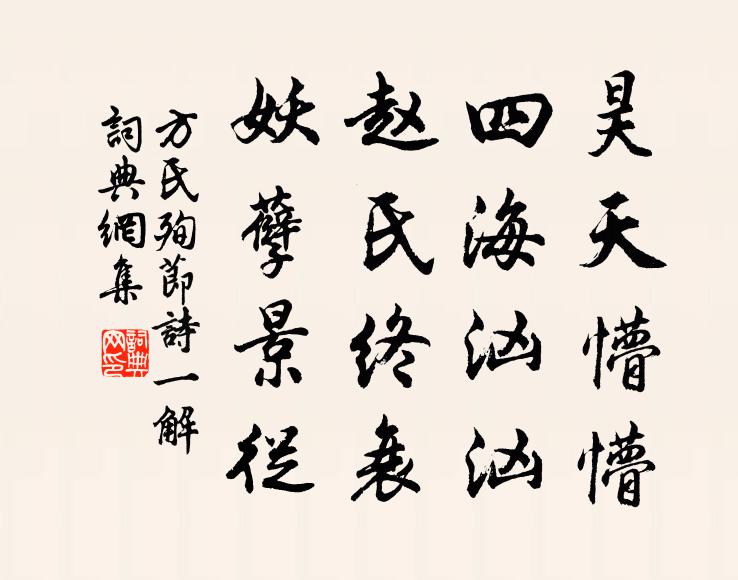 昊天懵懵
四海汹汹
赵氏终衰
妖孽景從
方氏殉節詩一解
詞典網集
詞典
网印